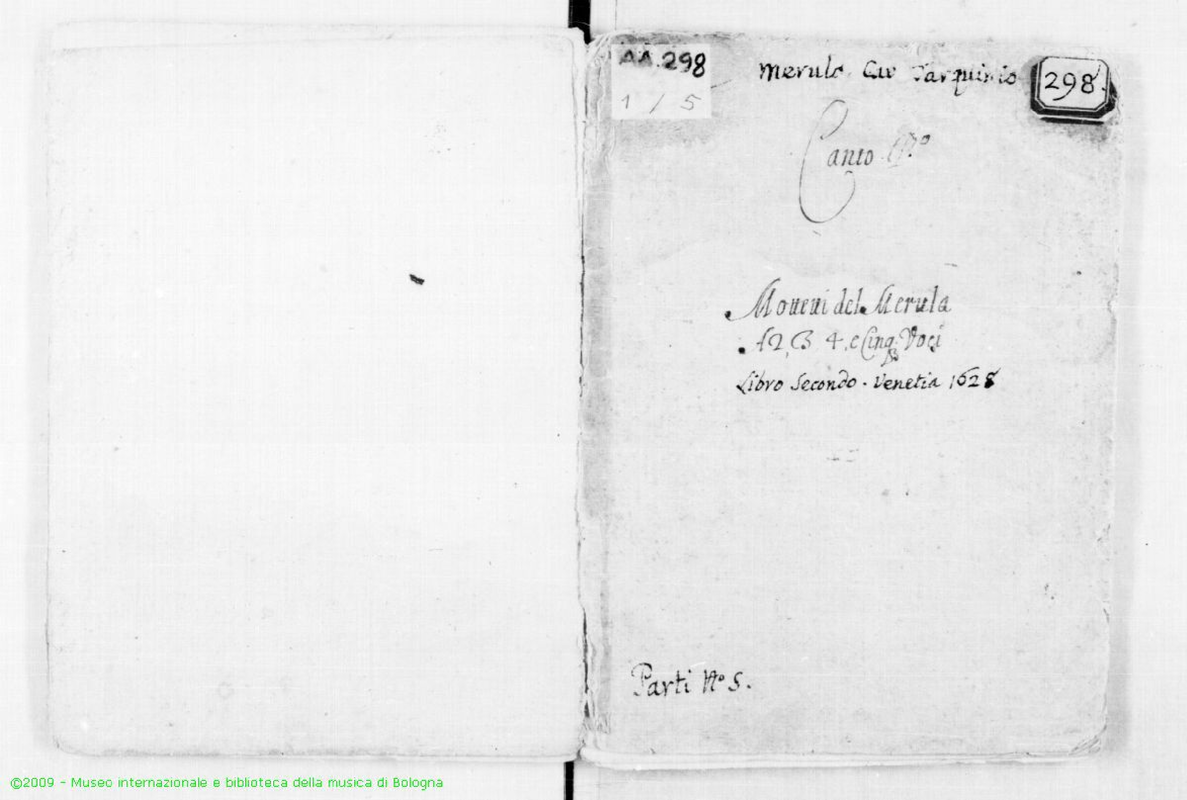 AA.298
1 / 5
Merula Cav Tarquinio
298.
Canto
Moteti del Merula
A 2, 3 4, e Cinq; Voci
Libro Secondo. Venetia 1628
Parti No 5.
©2009 - Museo internazionale e biblioteca della musica di Bologna